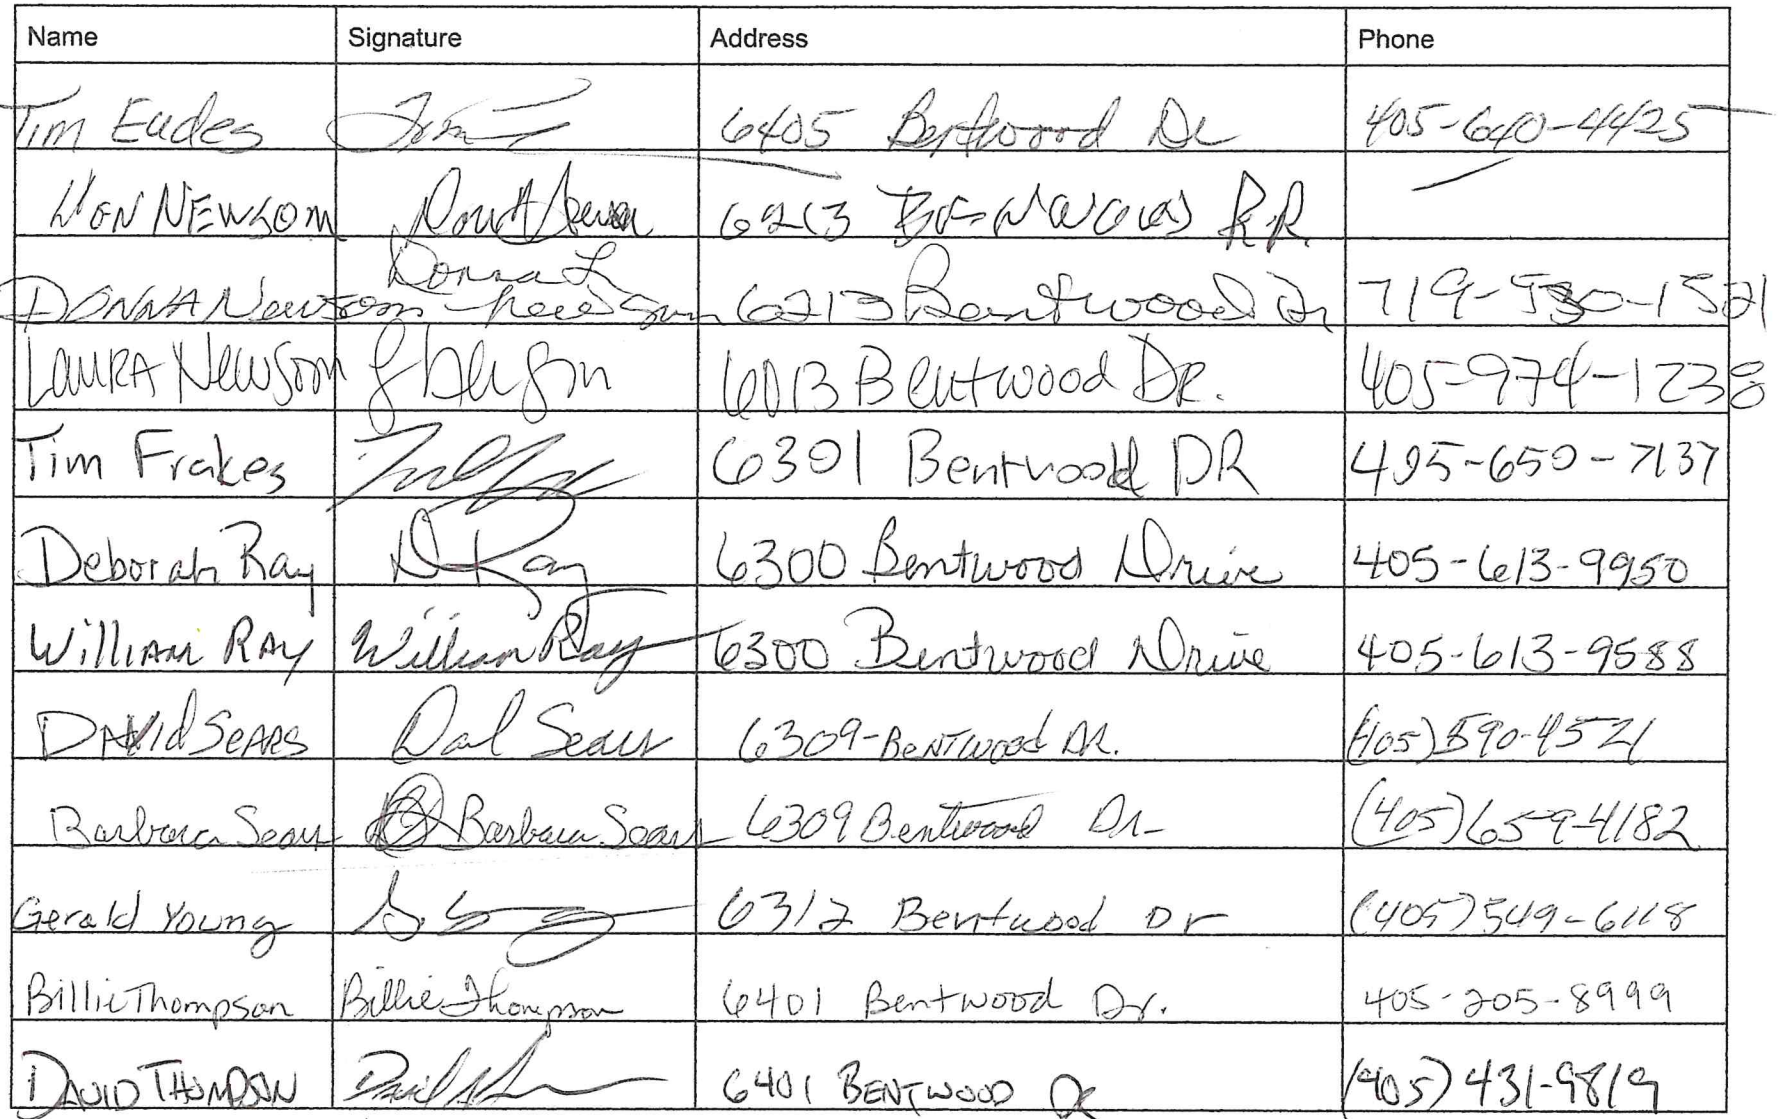 Name Signature Address Phone
Tim Eudes Tim 6405 Bentwood Dr 405-640-4425
DON NEWSOM 6213
DONNA Newsom Donna L Newsom 6213 Bentwood Dr 719-530-1521
LAURA Newsom 6013 Bentwood DR. 405-974-1238
Tim Frakes 6301 Bentwood DR 405-650-7137
Deborah Ray D Ray 6300 Bentwood Drive 405-613-9950
William RAY William Ray 6300 Bentwood Drive 405-613-9588
DAVID SEARS Sears 6309-Bentwood DR. (405) 590-4521
Barbara Sears Barbara Sears 6309 Bentwood Dr- (405) 659-4182
Gerald Young 6312 Bentwood Dr (405) 549-6118
Billie Thompson Billie Thompson 6401 Bentwood Dr. 405-205-8999
DAVID THOMPSON David 6401 BENTWOOD Dr (405) 431-9819